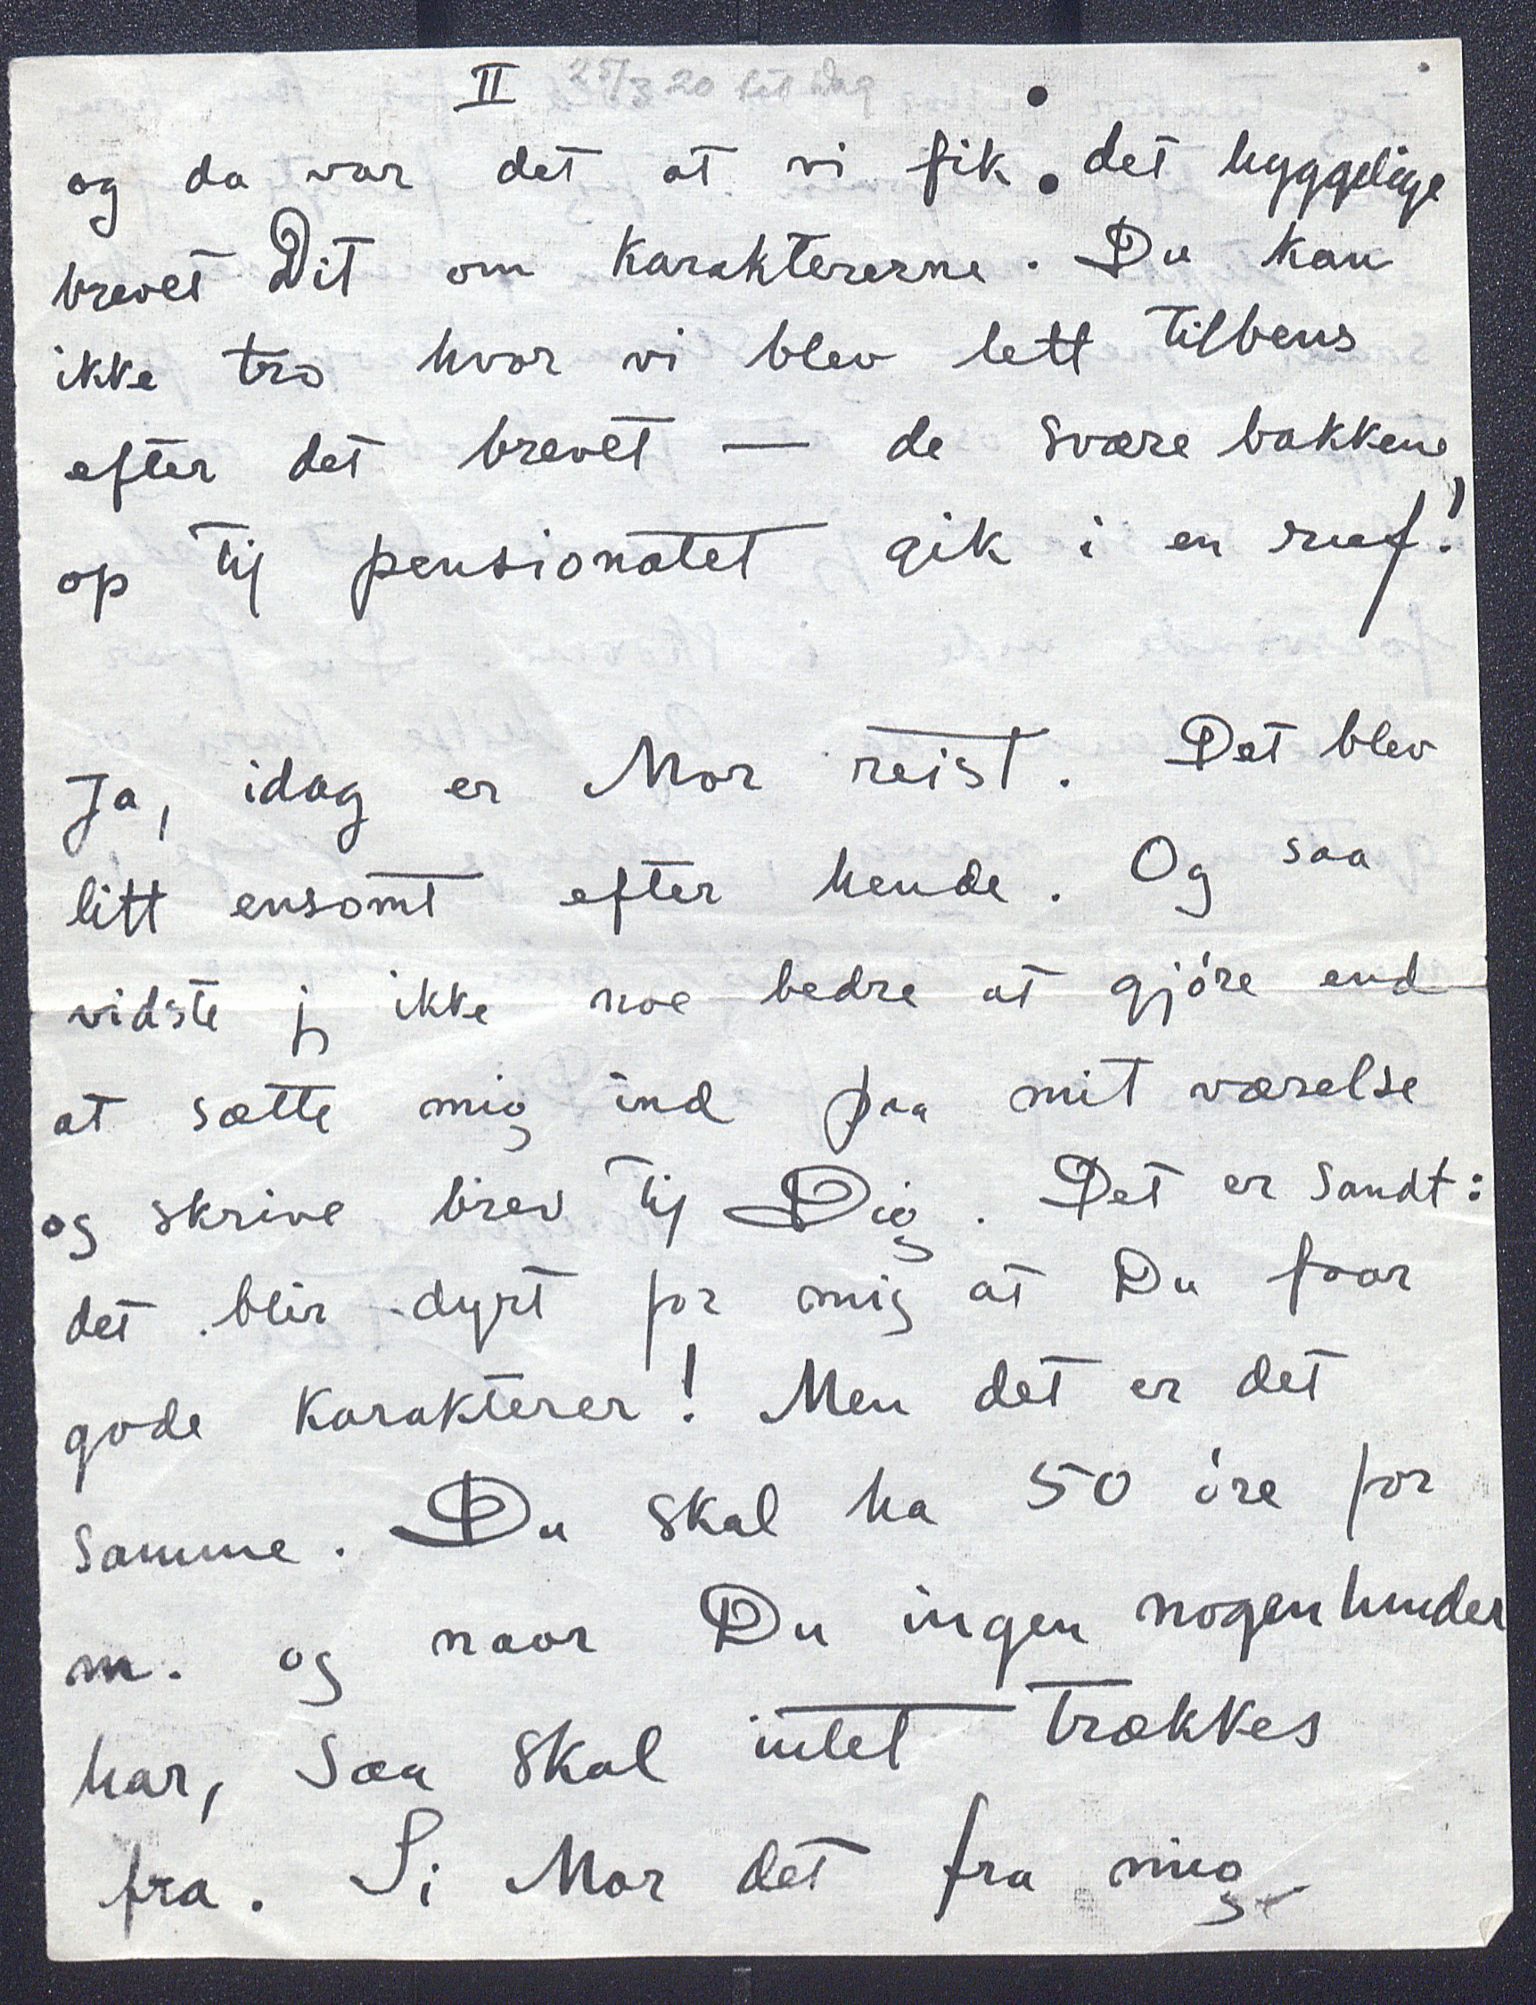 II 25/3 20
og da var det at vi fik det hyggelige
brevet Dit om karaktererne. Du kan
ikke tro hvor vi blev lett tilbens
efter det brevet — de svære bakkene
op til pensionatet gik i en ruf!
Ja, idag er Mor reist. Det blev
litt ensomt efter hende. Og saa
vidste jeg ikke noe bedre at gjøre end
at sætte mig ind paa mit værelse
og skrive brev til Dig. Det er sandt:
det blir dyrt for mig at Du faar
gode karakterer! Men det er det
samme. Du skal ha 50 øre for
m. og naar Du ingen nogenhunder
har, saa skal intet trækkes
fra. Si Mor det fra mig